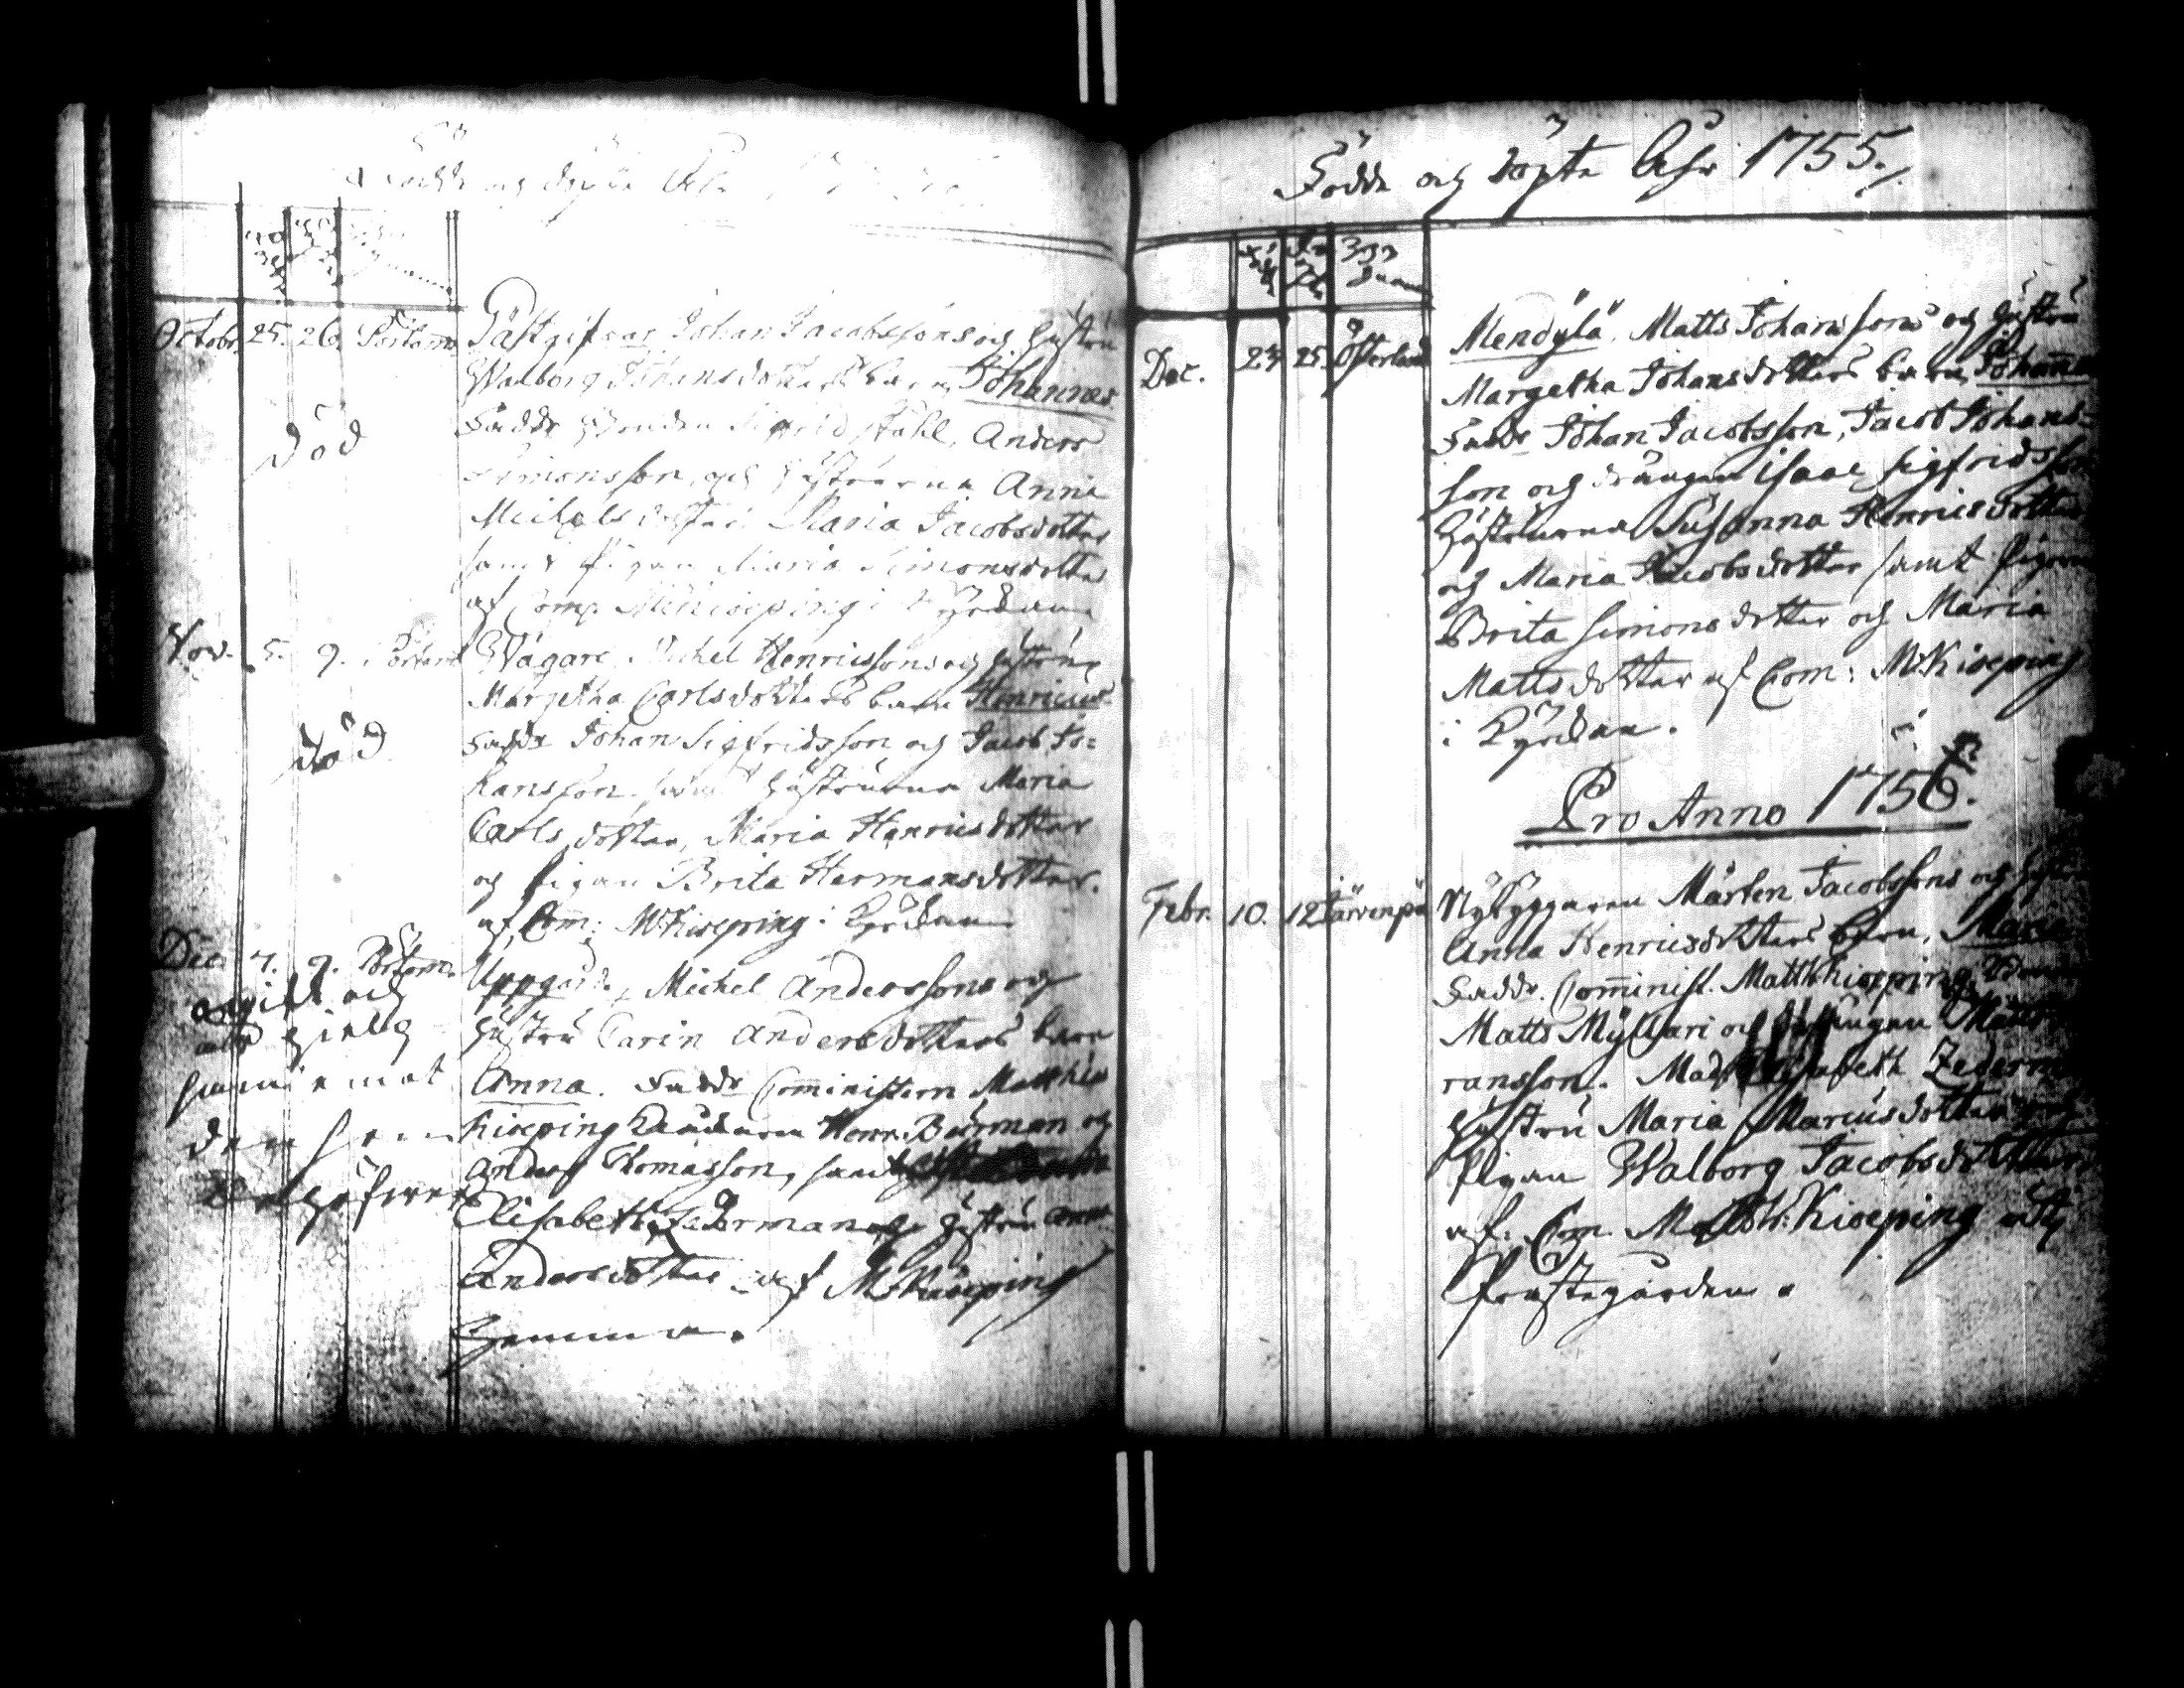 Födde och döpte Åhr
Octobr. 25. 26. Pörtom Gästgifvar Johan Jacobssons och hustru
Walborg Johansdotters barn, Johannes
Död
Fadd: Sigfrid Ståhl, Anders
Simonsson, och hustrurna Anna
Michelsdotter Maria Jacobsdotter
samt pigan Maria Simonsdotter
af Com: M:Kiseping i Kyrkan
Nov. 5. 9. Pörtom Wågare, Michel Henricssons och hustru
Margetha Carlsdotters barn Henricus
Död
Fadd: Johan Sigfridsson och Jacob Jo=
hansson samt hustrurna Maria
Carlsdotter, Maria Henricsdotter
och pigan Brita Hermansdotter.
af Com: M:Kiseping i Kyrkan
Dec. 7. 9. Pörtom. Uppgård, Michel Anderssons och
hustru Carin Andersdotters barn
Anna. Fadd: Comministern Matthis
Kiseping Herr Burman och
Anders Thomasson, samt
Elisabeth Zederman och hustru Anna
Andersdotter af M:Kiseping
hemma.
gift och
hielg
dem som
Födde och döpte Åhr 1755.
Dec. 24 25. Österland Mendylä, Matts Johanssons och hustru
Margetha Johansdotters barn, Johannes
Fadd: Johan Jacobsson, Jacob Johans=
son och drängen Isaac Sigfridsson
hustrurna Susanna Henricsdotter
och Maria Jacobsdotter samt pigorna
Brita Simonsdotter och Maria
Mattsdotter af Com: M:Kiseping
i Kyrkan.
Pro Anno 1756.
Febr. 10. 12 Järvenpä Nybyggaren Mårten Jacobssons och hustru
Anna Henricsdotters barn, Maria
Fadd: Comminist. Matth: Kiseping,
Matts Myllari och
ransson. Mad: Elisabeth Zederman
hustru Maria Mariusdotter och
pigan Walborg Jacobsdotter
af Com. Matth: Kiseping uti
Prästegården.